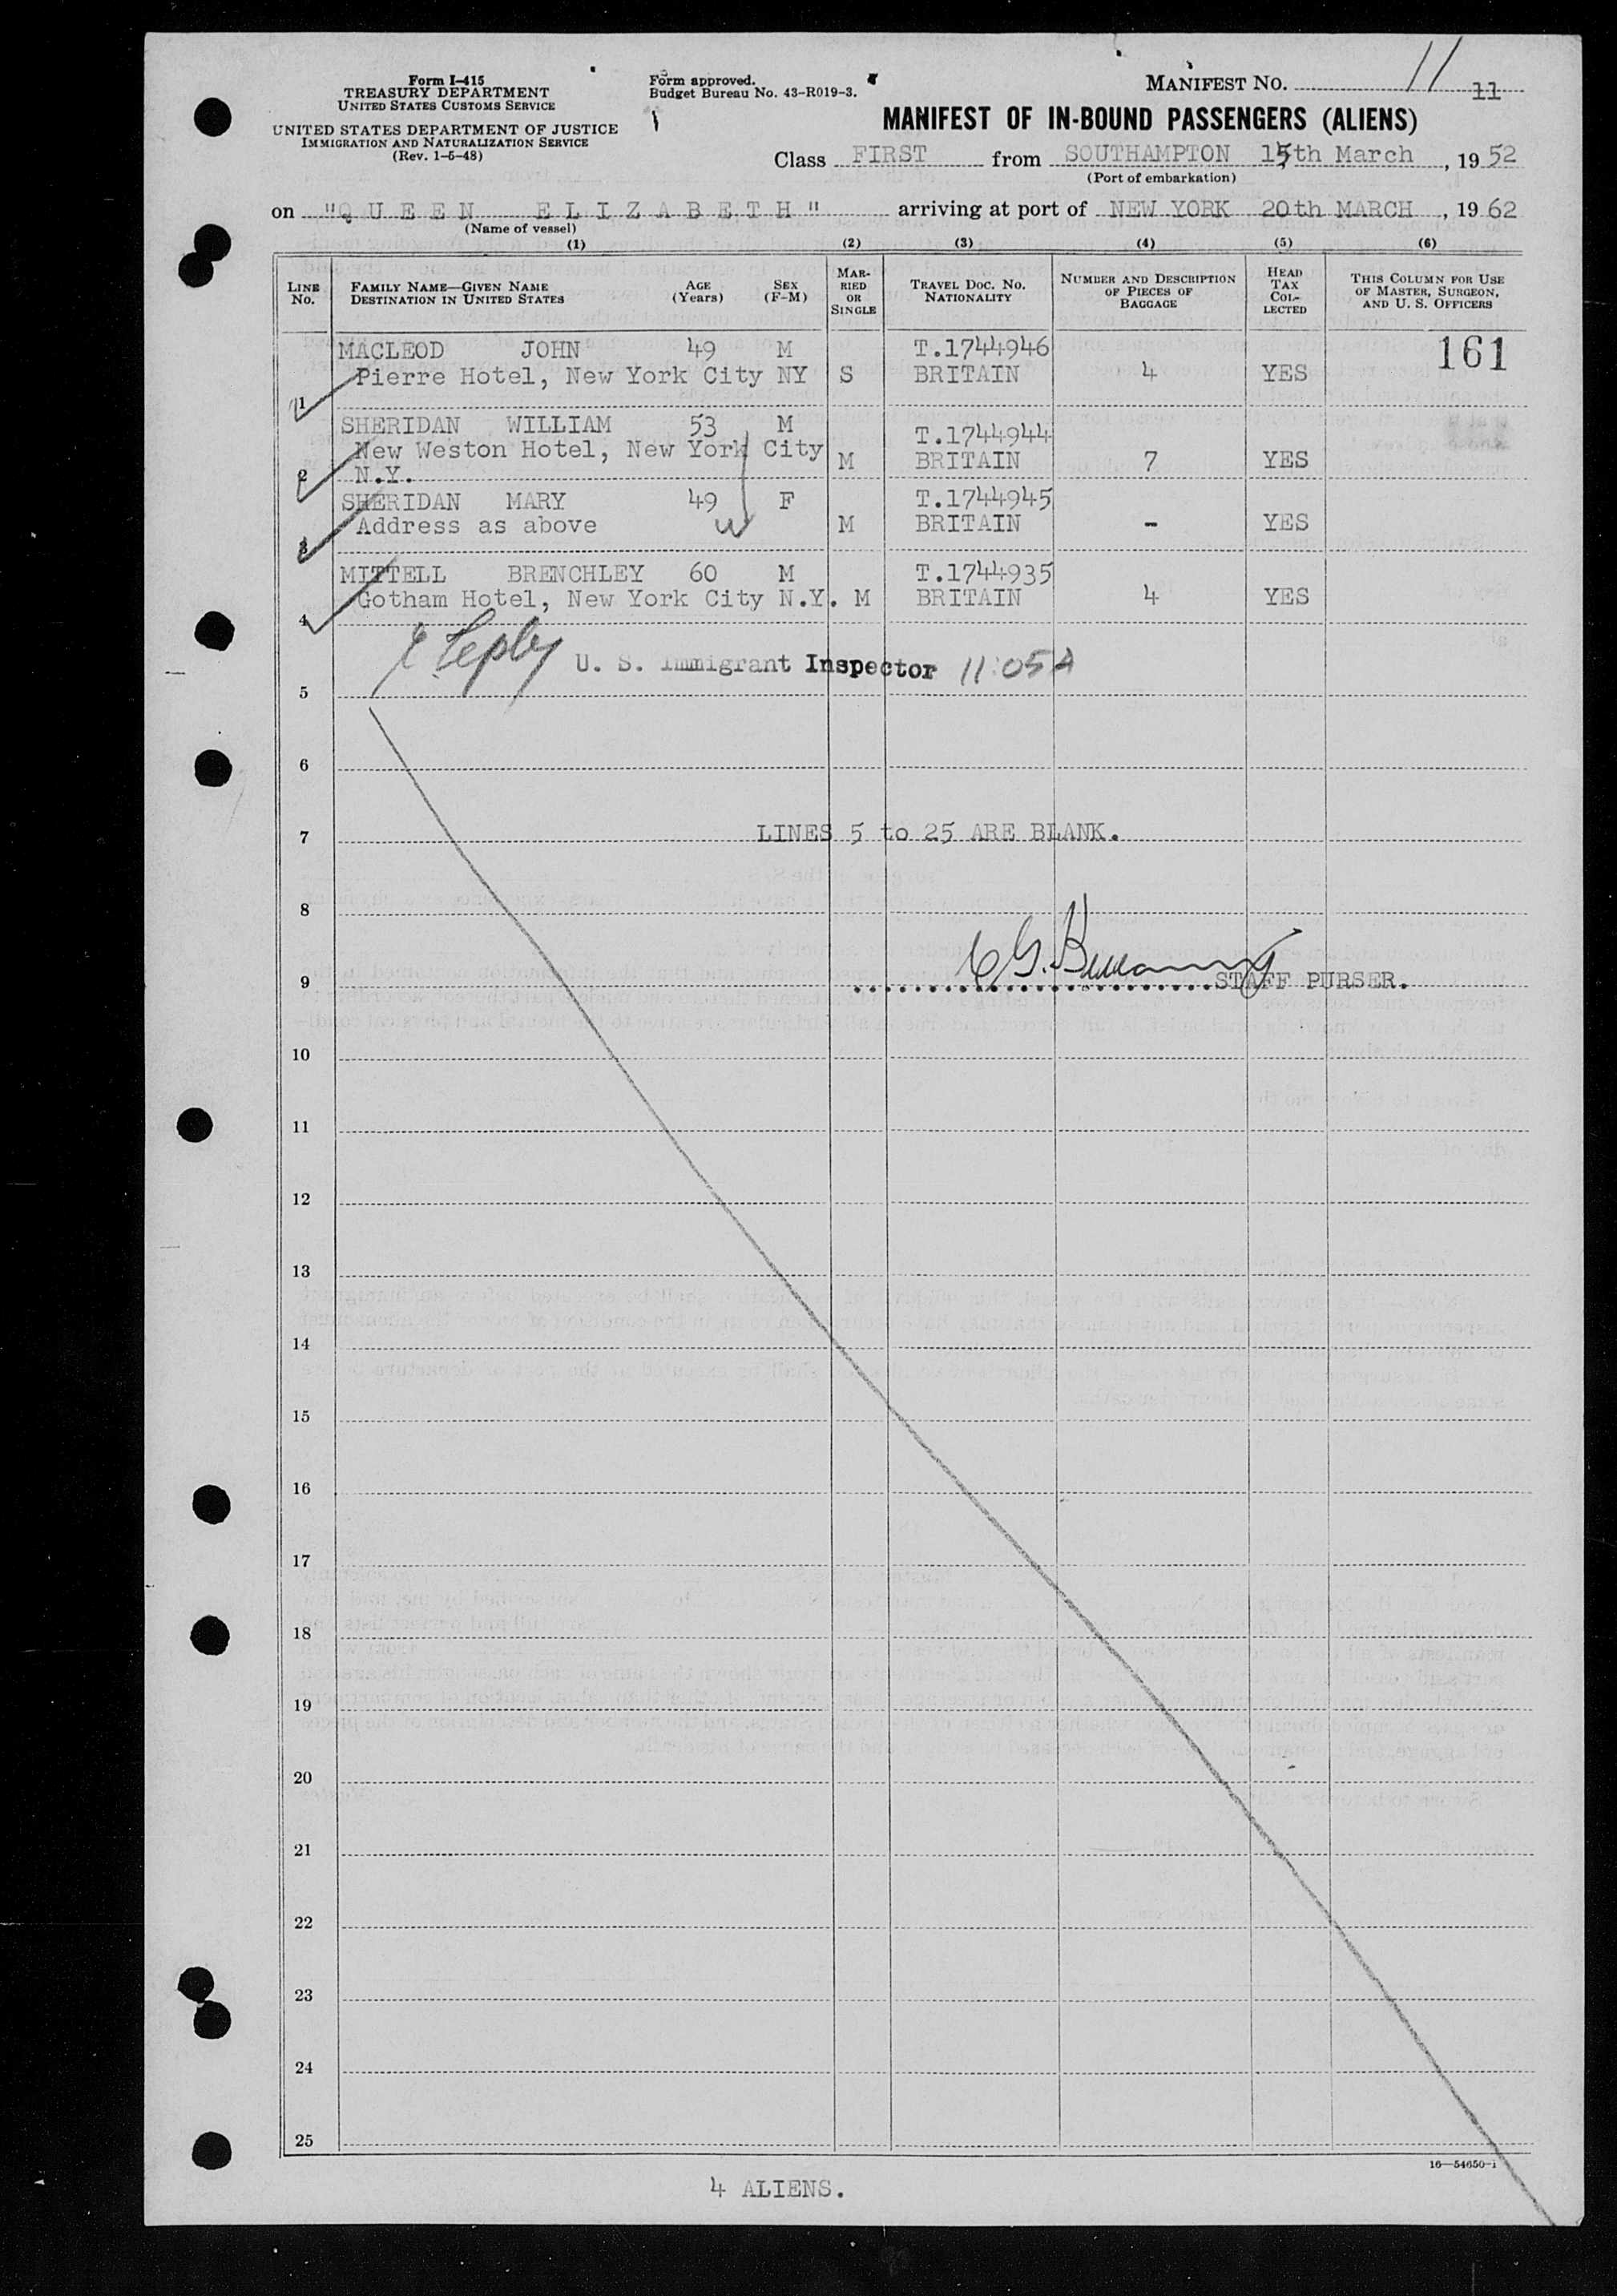 Form I-415
TREASURY DEPARTMENT
UNITED STATES CUSTOMS SERVICE
UNITED STATES DEPARTMENT OF JUSTICE
IMMIGRATION AND NATURALIZATION SERVICE
(Rev. 1-5-48)
Form approved.
Budget Bureau No. 43-R019-3.
MANIFEST NO. 11 11
MANIFEST OF IN-BOUND PASSENGERS (ALIENS)
Class FIRST from SOUTHAMPTON 15th March, 19 52
(Port of embarkation)
on "QUEEN ELIZABETH" arriving at port of NEW YORK 20th MARCH, 19 62
(Name of vessel)
(1) (2) (3) (4) (5) (6)
LINE NO. FAMILY NAME—GIVEN NAME DESTINATION IN UNITED STATES AGE (Years) SEX (F-M) MARRIED OR SINGLE TRAVEL DOC. NO. NATIONALITY NUMBER AND DESCRIPTION OF PIECES OF BAGGAGE HEAD TAX COLLECTED THIS COLUMN FOR USE OF MASTER, SURGEON, AND U. S. OFFICERS
MACLEOD JOHN 49 M T.1744946 161
Pierre Hotel, New York City NY S BRITAIN 4 YES
1
SHERIDAN WILLIAM 53 M T.1744944
New Weston Hotel, New York City M BRITAIN 7 YES
2 N.Y.
SHERIDAN MARY 49 F T.1744945
Address as above W M BRITAIN - YES
3
MITTELL BRENCHLEY 60 M T.1744935
Gotham Hotel, New York City N.Y. M BRITAIN 4 YES
4
U. S. Immigrant Inspector 11:05 A
5
6
7 LINES 5 to 25 ARE BLANK.
8
9 STAFF PURSER.
10
11
12
13
14
15
16
17
18
19
20
21
22
23
24
25
16—54650-1
4 ALIENS.